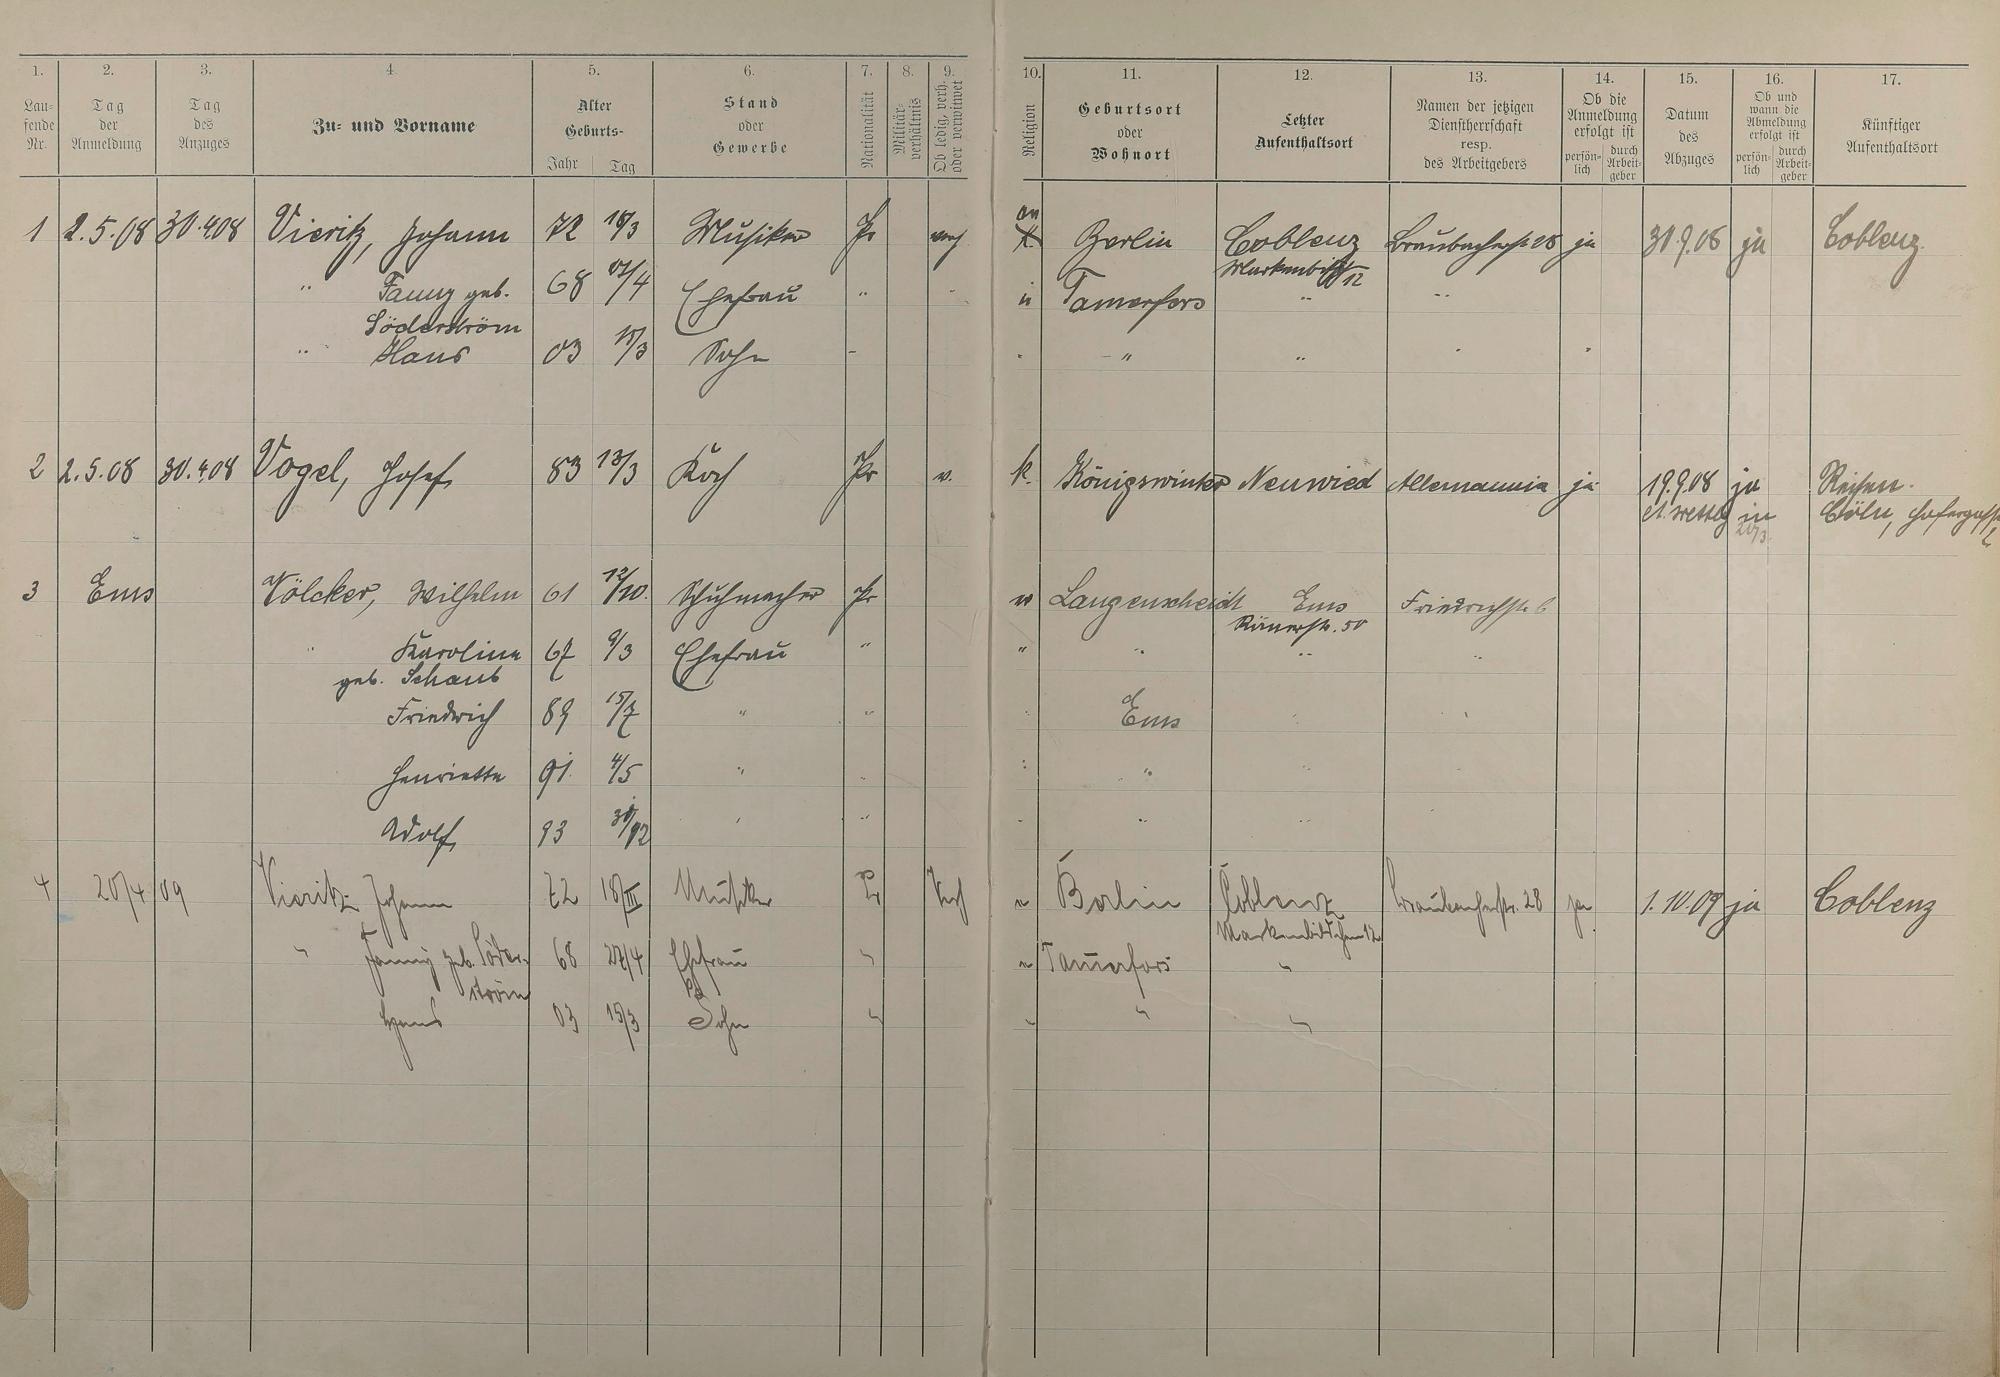 1. 2. 3. 4. 5. 6. 7. 8. 9. 10. 11. 12. 13. 14. 15. 16. 17.
Lau-
fende
Nr.
Tag
der
Anmeldung
Tag
des
Anzuges
Zu- und Vorname
Alter
Geburts-
Jahr Tag
Stand
oder
Gewerbe
Nationalität
Militär-
verhältnis
Ob ledig, verh.
oder verwitwet
Religion
Geburtsort
oder
Wohnort
Letzter
Aufenthaltsort
Namen der jetzigen
Dienstherrschaft
resp.
des Arbeitgebers
Ob die
Anmeldung
erfolgt ist
persön-
lich
durch
Arbeit-
geber
Datum
des
Abzuges
Ob und
wann die
Abmeldung
erfolgt ist
persön-
lich
durch
Arbeit-
geber
Künftiger
Aufenthaltsort
1 2.5.08 30.4.08 Vieritz, Johann 72 18/3 Musiker Pr verh Berlin Coblenz Braubacherstr 28 ja 31.9.08 ja Coblenz.
Markenbildch 12
" Fanny geb. 68 27/4 Ehefrau " " " Tamerfors " "
Söderström
" Hans 03 15/3 Sohn " " " " " "
2 2.5.08 30.4.08 Vogel, Josef 83 13/3 Koch Pr v. k. Königswinter Neuwied Allemannia ja 19.9.08 ja Reisen.
Cöln,
3 Ems Völcker, Wilhelm 61 12/10. Schuhmacher Pr Langenscheidt Ems Friedrichstr 6
Römerstr. 50
" Karoline 67 9/3 Ehefrau " " " " "
geb. Schaub
Friedrich 89 15/7 " " " Ems " "
Henriette 91 4/5 " " " " " "
Adolf 93 " " " " "
4 20/4 09 Vieritz Johann 72 18/III Musiker Pr Verh " Berlin Coblenz Braubacherstr. 28 ja 1.10.09 ja Coblenz
Markenbildchen 12
" Fanny geb. Söder- 68 27/4 Ehefrau " " Tamerfors "
ström
Hans 03 15/3 Sohn " " " "